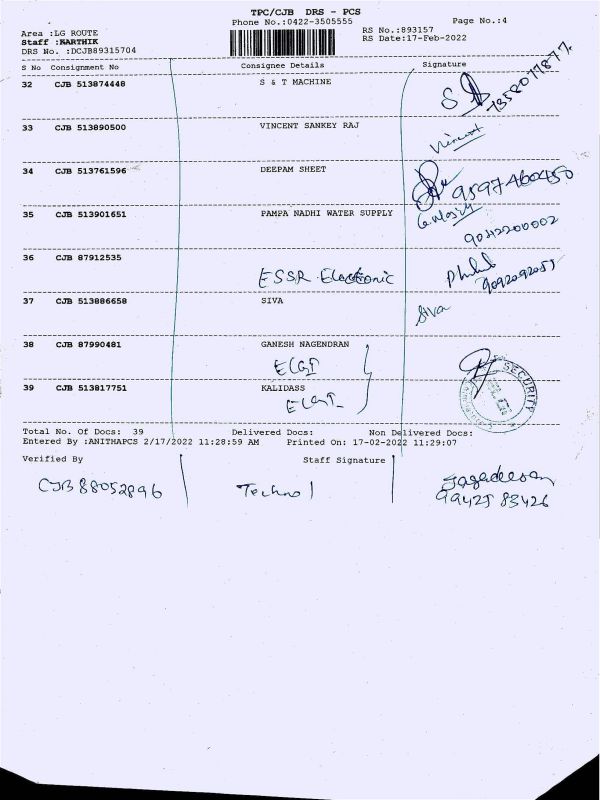 TPC/CJB DRS - PCS
Phone No.:0422-3505555 Page No.:4
Area :LG ROUTE RS No.:893157
Staff :KARTHIK RS Date:17-Feb-2022
DRS No. :DCJB89315704
S No Consignment No Consignee Details Signature
32 CJB 513874448 S & T MACHINE
33 CJB 513890500 VINCENT SANKEY RAJ Vincent
34 CJB 513761596 DEEPAM SHEET
35 CJB 513901651 PAMPA NADHI WATER SUPPLY
9042200002
36 CJB 87912535 ESSR Electronic
9092092055
37 CJB 513886658 SIVA Siva
38 CJB 87990481 GANESH NAGENDRAN
ELGI
SECURITY
39 CJB 513817751 KALIDASS
ELGI
Total No. Of Docs: 39 Delivered Docs: Non Delivered Docs:
Entered By :ANITHAPCS 2/17/2022 11:28:59 AM Printed On: 17-02-2022 11:29:07
Verified By Staff Signature
CJB 88052896 Techno Jagadeesan
99425 83426